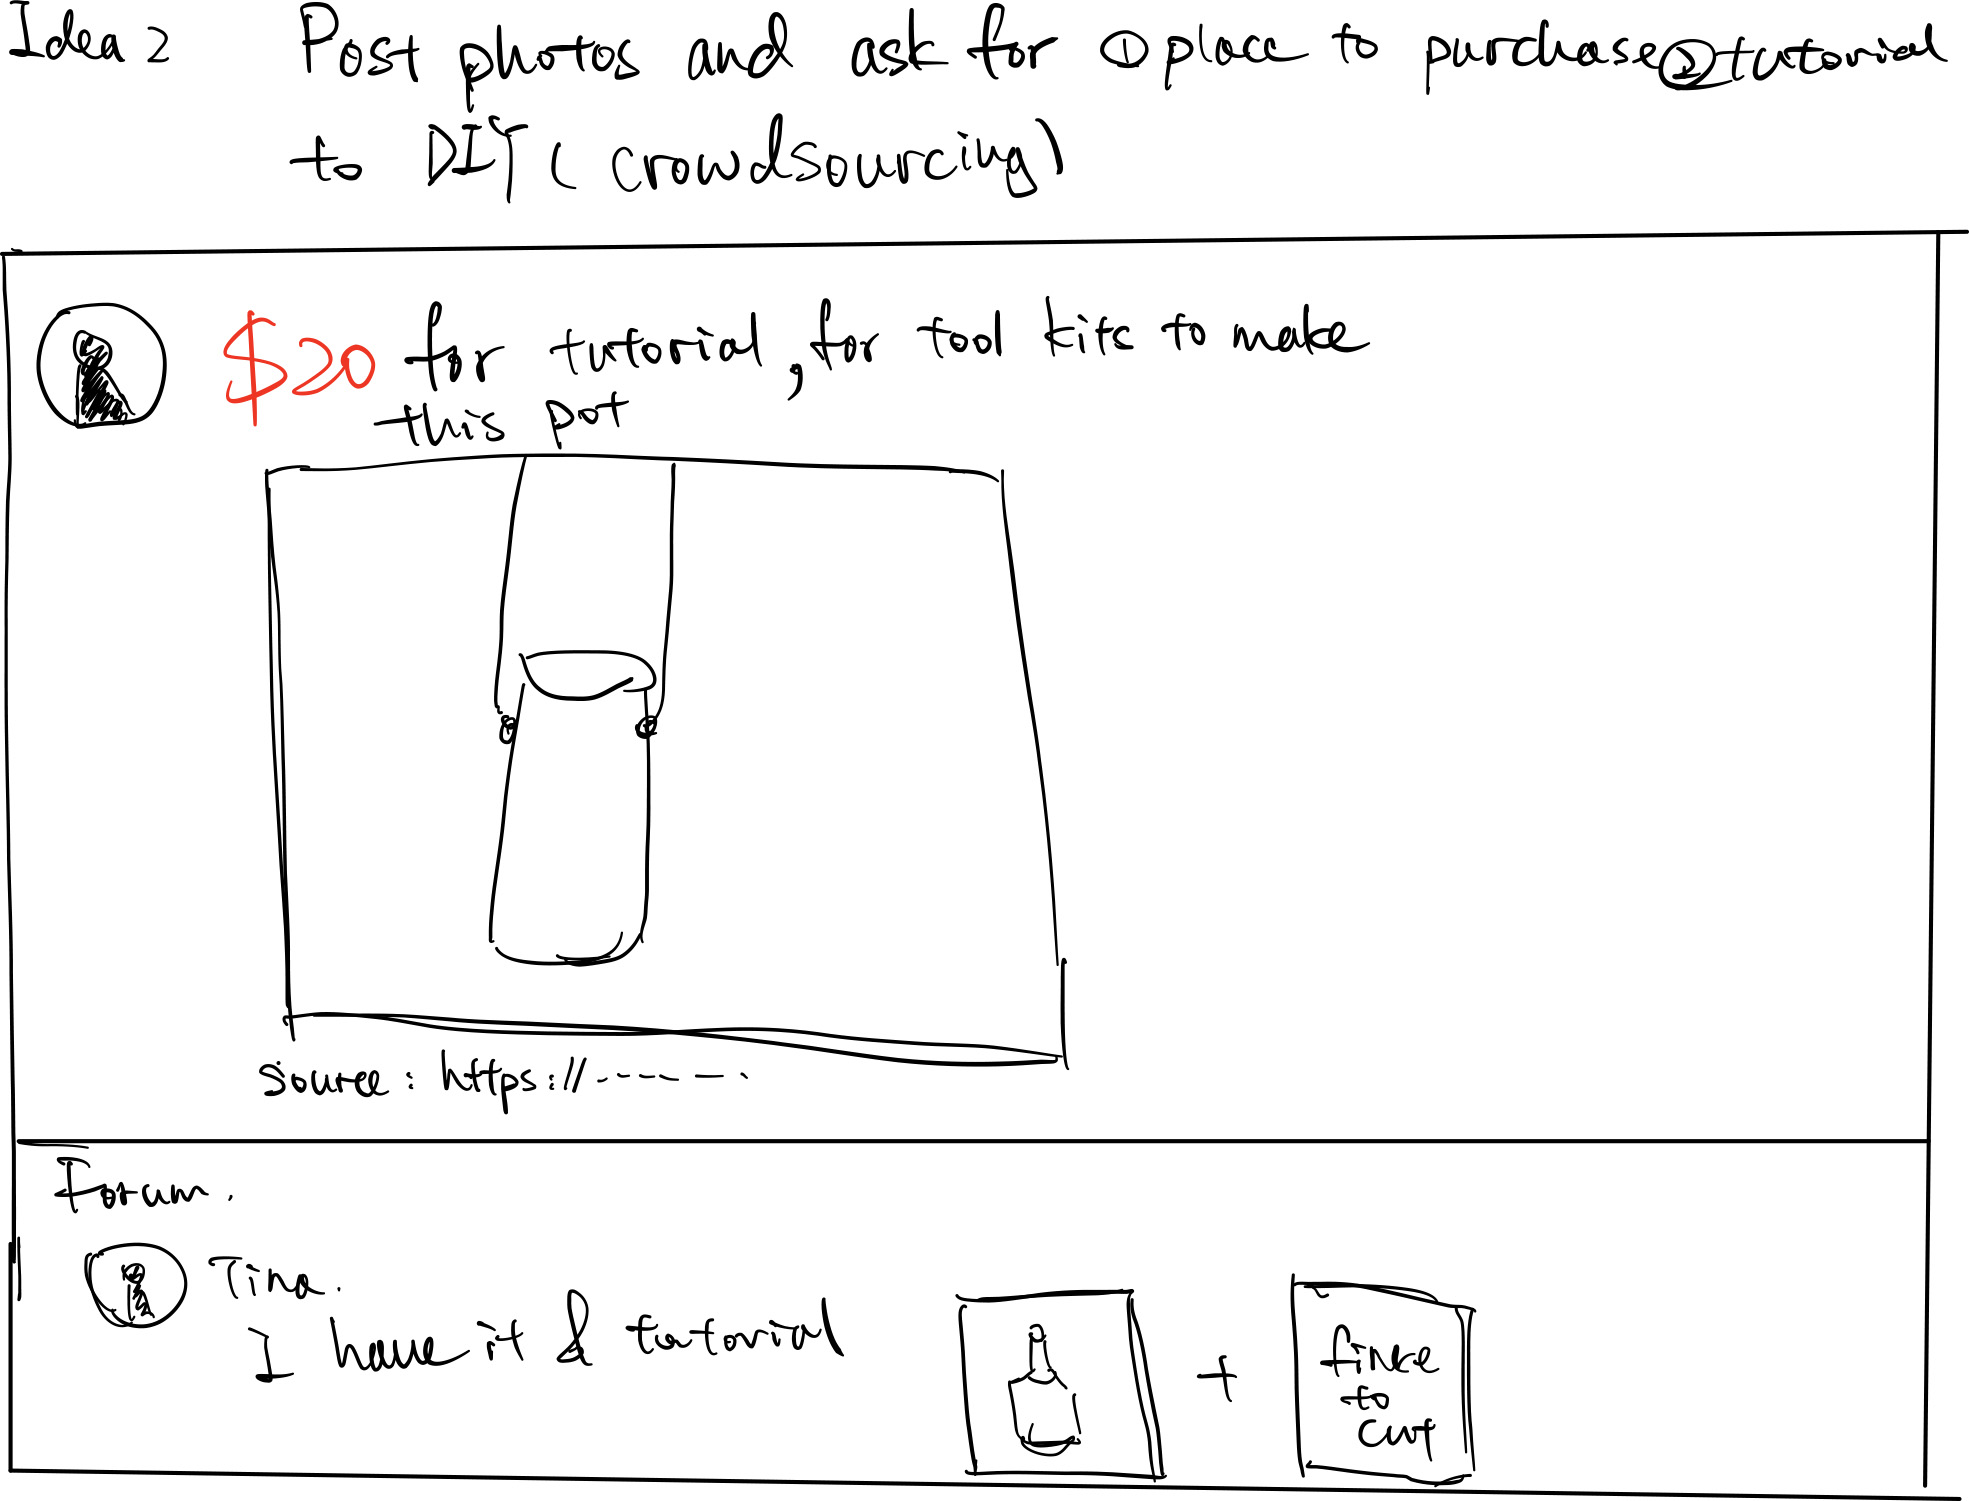 Idea 2 Post photos and ask for ① place to purchase ② tutorial
to DIY ( crowdsourcing)
$20 for tutorial, for tool kits to make
this pot
source : https://.------.
Forum.
Tina.
I have it & tutorial
+
to
cut